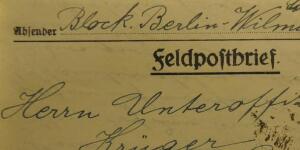 Absender Block. Berlin-Wilm
Feldpostbrief.
Herrn Unteroffi
Krüger